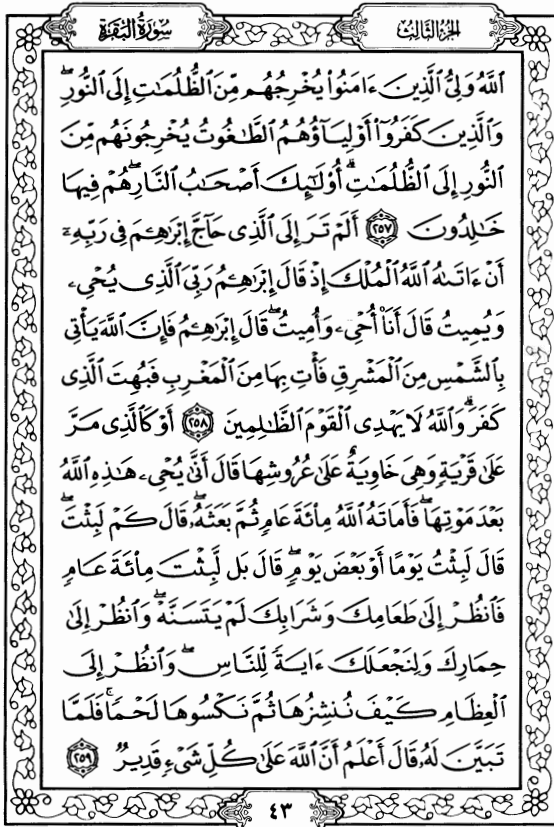 سُورَةُ البَقَرَةِ
الجُزءُ الثَّالِثُ
ٱللَّهُ وَلِىُّ ٱلَّذِينَ ءَامَنُوا۟ يُخْرِجُهُم مِّنَ ٱلظُّلُمَٰتِ إِلَى ٱلنُّورِۖ
وَٱلَّذِينَ كَفَرُوٓا۟ أَوْلِيَآؤُهُمُ ٱلطَّٰغُوتُ يُخْرِجُونَهُم مِّنَ
ٱلنُّورِ إِلَى ٱلظُّلُمَٰتِۗ أُو۟لَٰٓئِكَ أَصْحَٰبُ ٱلنَّارِۖ هُمْ فِيهَا
خَٰلِدُونَ ٢٥٧ أَلَمْ تَرَ إِلَى ٱلَّذِى حَآجَّ إِبْرَٰهِۦمَ فِى رَبِّهِۦٓ
أَنْ ءَاتَىٰهُ ٱللَّهُ ٱلْمُلْكَ إِذْ قَالَ إِبْرَٰهِۦمُ رَبِّىَ ٱلَّذِى يُحْىِۦ
وَيُمِيتُ قَالَ أَنَا۠ أُحْىِۦ وَأُمِيتُۖ قَالَ إِبْرَٰهِۦمُ فَإِنَّ ٱللَّهَ يَأْتِى
بِٱلشَّمْسِ مِنَ ٱلْمَشْرِقِ فَأْتِ بِهَا مِنَ ٱلْمَغْرِبِ فَبُهِتَ ٱلَّذِى
كَفَرَۗ وَٱللَّهُ لَا يَهْدِى ٱلْقَوْمَ ٱلظَّٰلِمِينَ ٢٥٨ أَوْ كَٱلَّذِى مَرَّ
عَلَىٰ قَرْيَةٍ وَهِىَ خَاوِيَةٌ عَلَىٰ عُرُوشِهَا قَالَ أَنَّىٰ يُحْىِۦ هَٰذِهِ ٱللَّهُ
بَعْدَ مَوْتِهَاۖ فَأَمَاتَهُ ٱللَّهُ مِا۟ئَةَ عَامٍ ثُمَّ بَعَثَهُۥۖ قَالَ كَمْ لَبِثْتَۖ
قَالَ لَبِثْتُ يَوْمًا أَوْ بَعْضَ يَوْمٍۖ قَالَ بَل لَّبِثْتَ مِا۟ئَةَ عَامٍ
فَٱنظُرْ إِلَىٰ طَعَامِكَ وَشَرَابِكَ لَمْ يَتَسَنَّهْۖ وَٱنظُرْ إِلَىٰ
حِمَارِكَ وَلِنَجْعَلَكَ ءَايَةً لِّلنَّاسِۖ وَٱنظُرْ إِلَى
ٱلْعِظَامِ كَيْفَ نُنشِزُهَا ثُمَّ نَكْسُوهَا لَحْمًاۚ فَلَمَّا
تَبَيَّنَ لَهُۥ قَالَ أَعْلَمُ أَنَّ ٱللَّهَ عَلَىٰ كُلِّ شَىْءٍ قَدِيرٌ ٢٥٩
٤٣